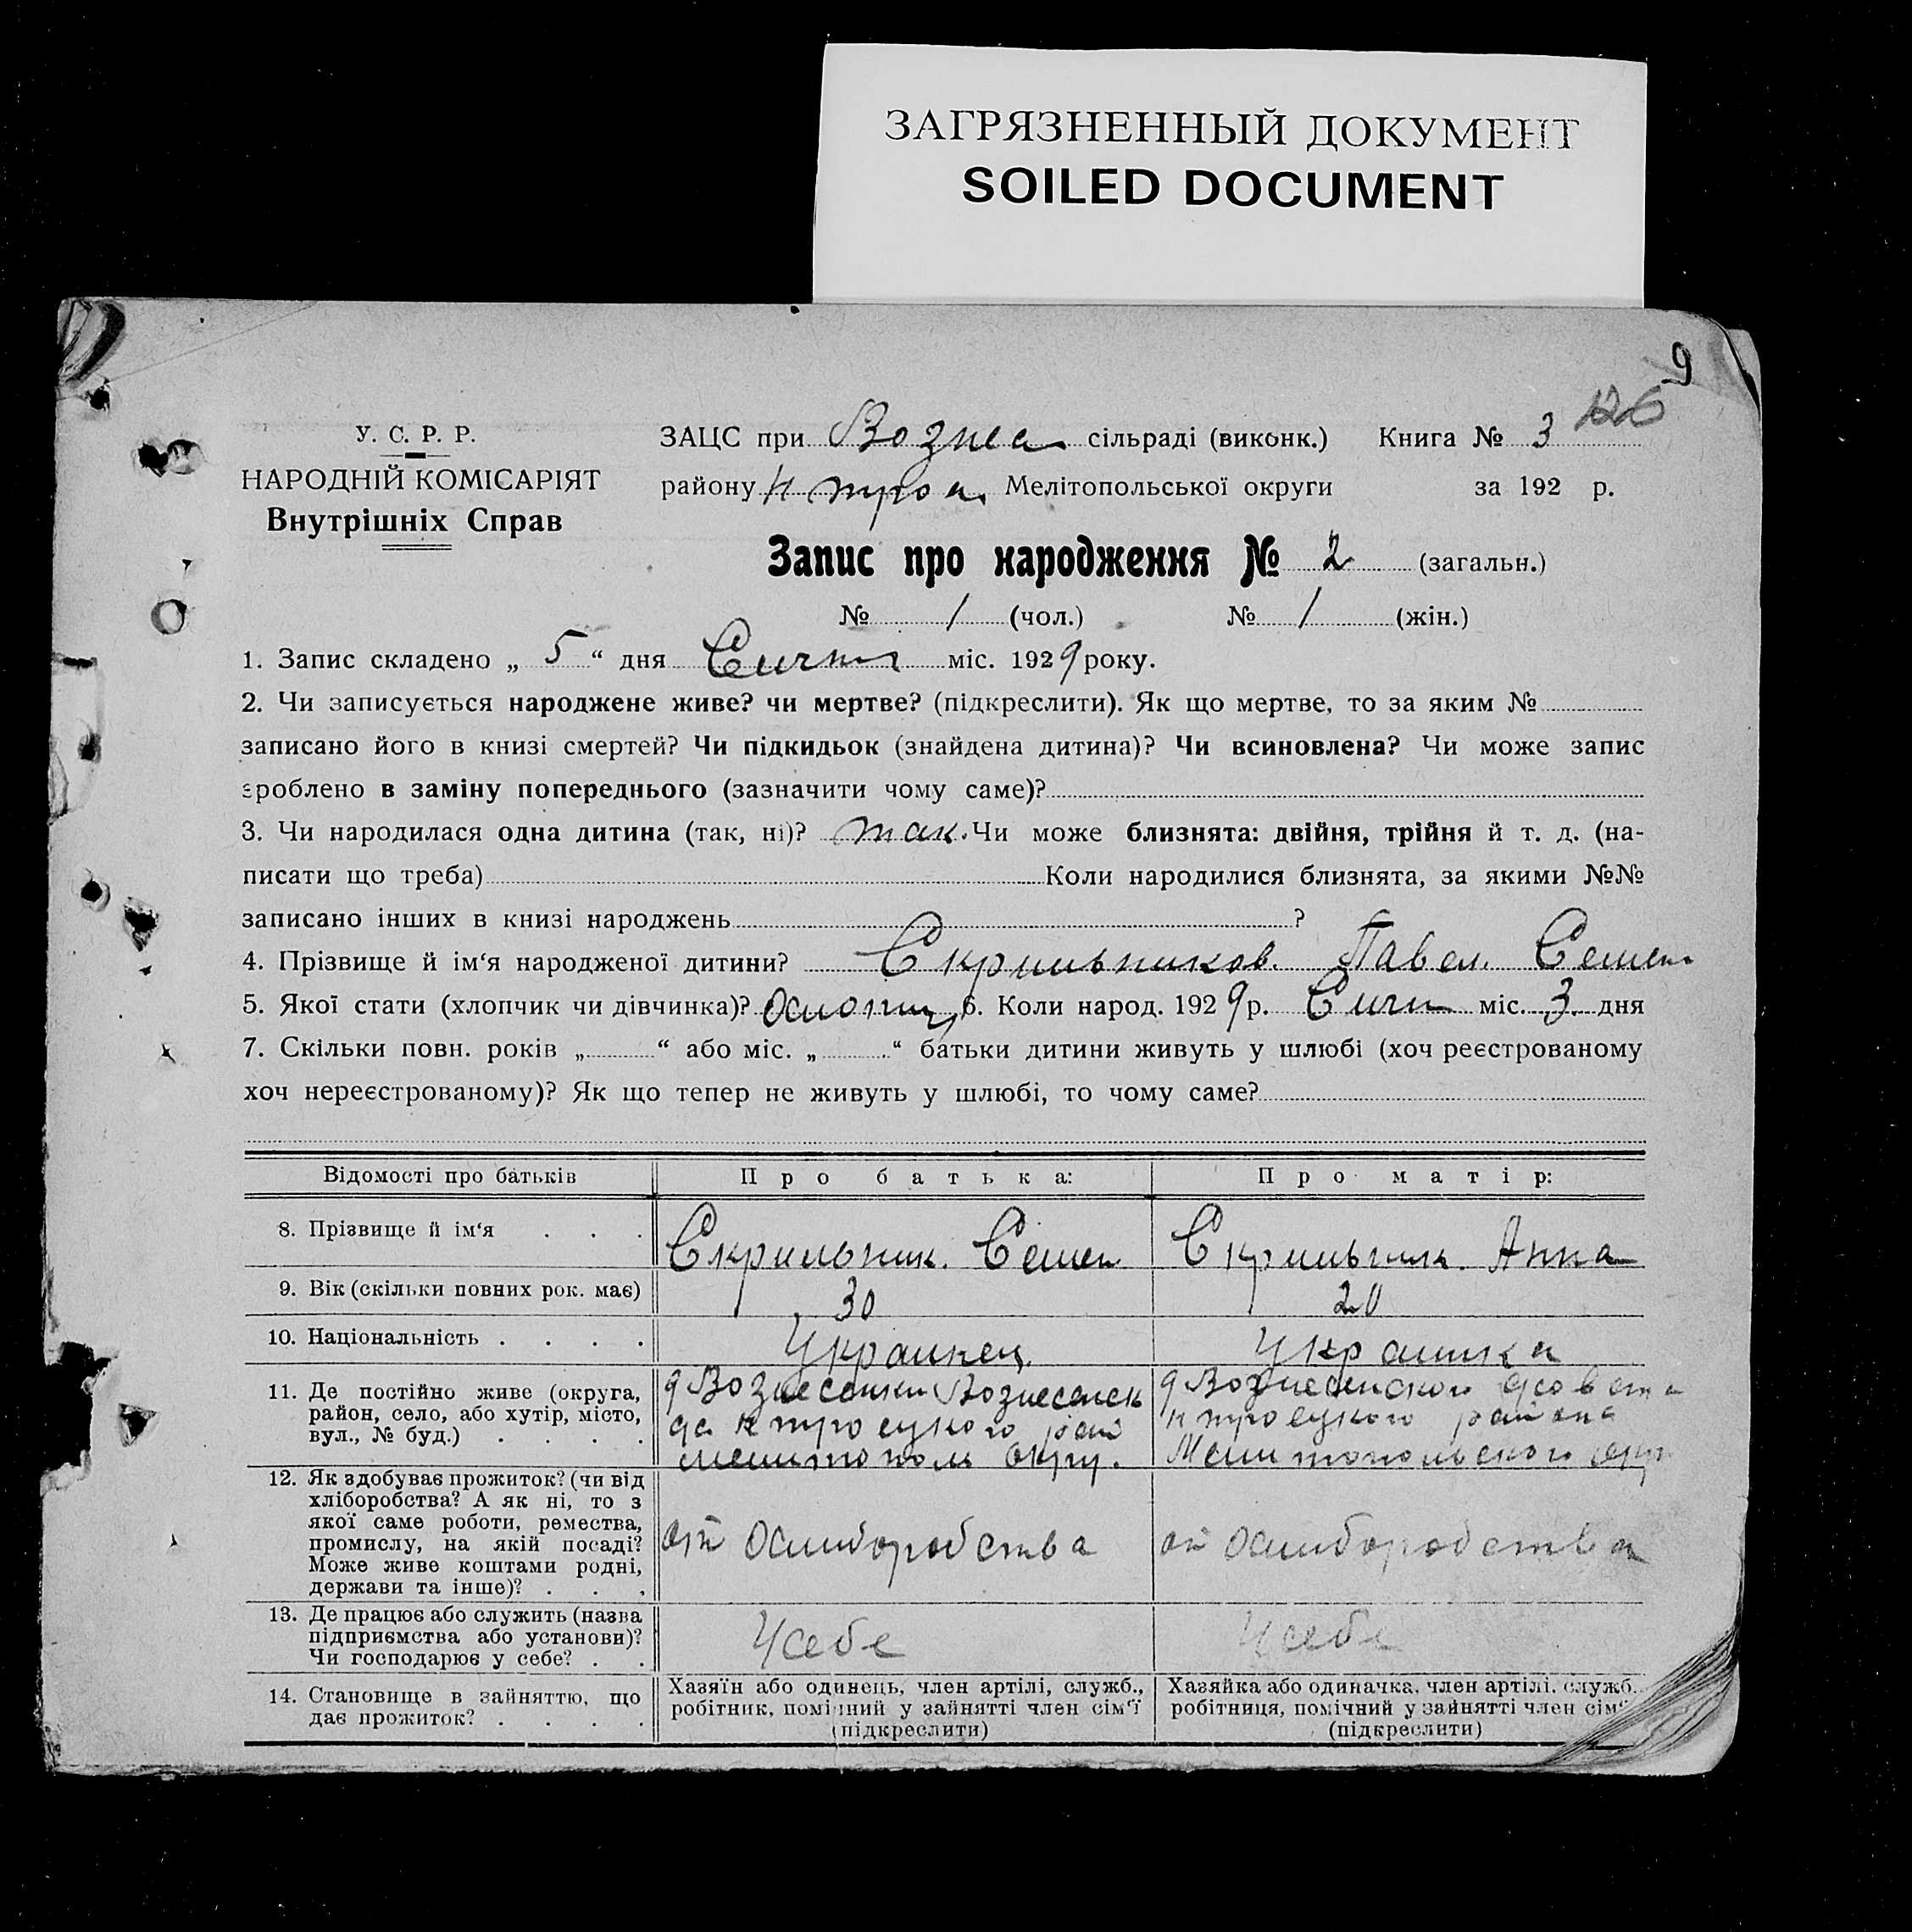 ЗАГРЯЗНЕННЫЙ ДОКУМЕНТ
SOILED DOCUMENT
9
126
У. С. Р. Р.
НАРОДНІЙ КОМІСАРІЯТ
Внутрішніх Справ
ЗАЦС при Вознес сільраді (виконк.) Книга № 3
району Н троц Мелітопольської округи за 192 р.
Запис про народження № 2 (загальн.)
№ 1 (чол.) № / (жін.)
1. Запис складено „ 5 “ дня Сичня міс. 1929 року.
2. Чи записується народжене живе? чи мертве? (підкреслити). Як що мертве, то за яким №
записано його в книзі смертей? Чи підкидьок (знайдена дитина)? Чи всиновлена? Чи може запис
зроблено в заміну попереднього (зазначити чому саме)?
3. Чи народилася одна дитина (так, ні)? так. Чи може близнята: двійня, трійня й т. д. (на-
писати що треба) Коли народилися близнята, за якими №№
записано інших в книзі народжень ?
4. Прізвище й ім‘я народженої дитини? Скрильников. Павел. Семен
5. Якої стати (хлопчик чи дівчинка)? 6. Коли народ. 1929 р. Сичн міс. 3 дня
7. Скільки повн. років „ “ або міс. „ “ батьки дитини живуть у шлюбі (хоч реєстрованому
хоч нереєстрованому)? Як що тепер не живуть у шлюбі, то чому саме?
Відомості про батьків Про батька: Про матір:
8. Прізвище й ім‘я . . . Скрильник. Семен Скрильник. Анна
9. Вік (скільки повних рок. має) 30 20
10. Національність . . . . Украинец. Украинка
11. Де постійно живе (округа,
район, село, або хутір, місто,
вул., № буд.) . . . .
Вознесенки Вознесенск
н троецкого рай
мелитополь округ.
Вознесенского
н троецкого района
Мелитопольского округ
12. Як здобуває прожиток? (чи від
хліборобства? А як ні, то з
якої саме роботи, ремества,
промислу, на якій посаді?
Може живе коштами родні,
держави та інше)? . . .
от хлиборобства
от хлиборобства
13. Де працює або служить (назва
підприємства або установи)?
Чи господарює у себе? . .
У себе
У себе
14. Становище в зайняттю, що
дає прожиток? . . . .
Хазяїн або одинець, член артілі, служб.,
робітник, помічний у зайнятті член сім‘ї
(підкреслити)
Хазяйка або одиначка, член артілі, служб.
робітниця, помічний у зайнятті член сім‘
(підкреслити)